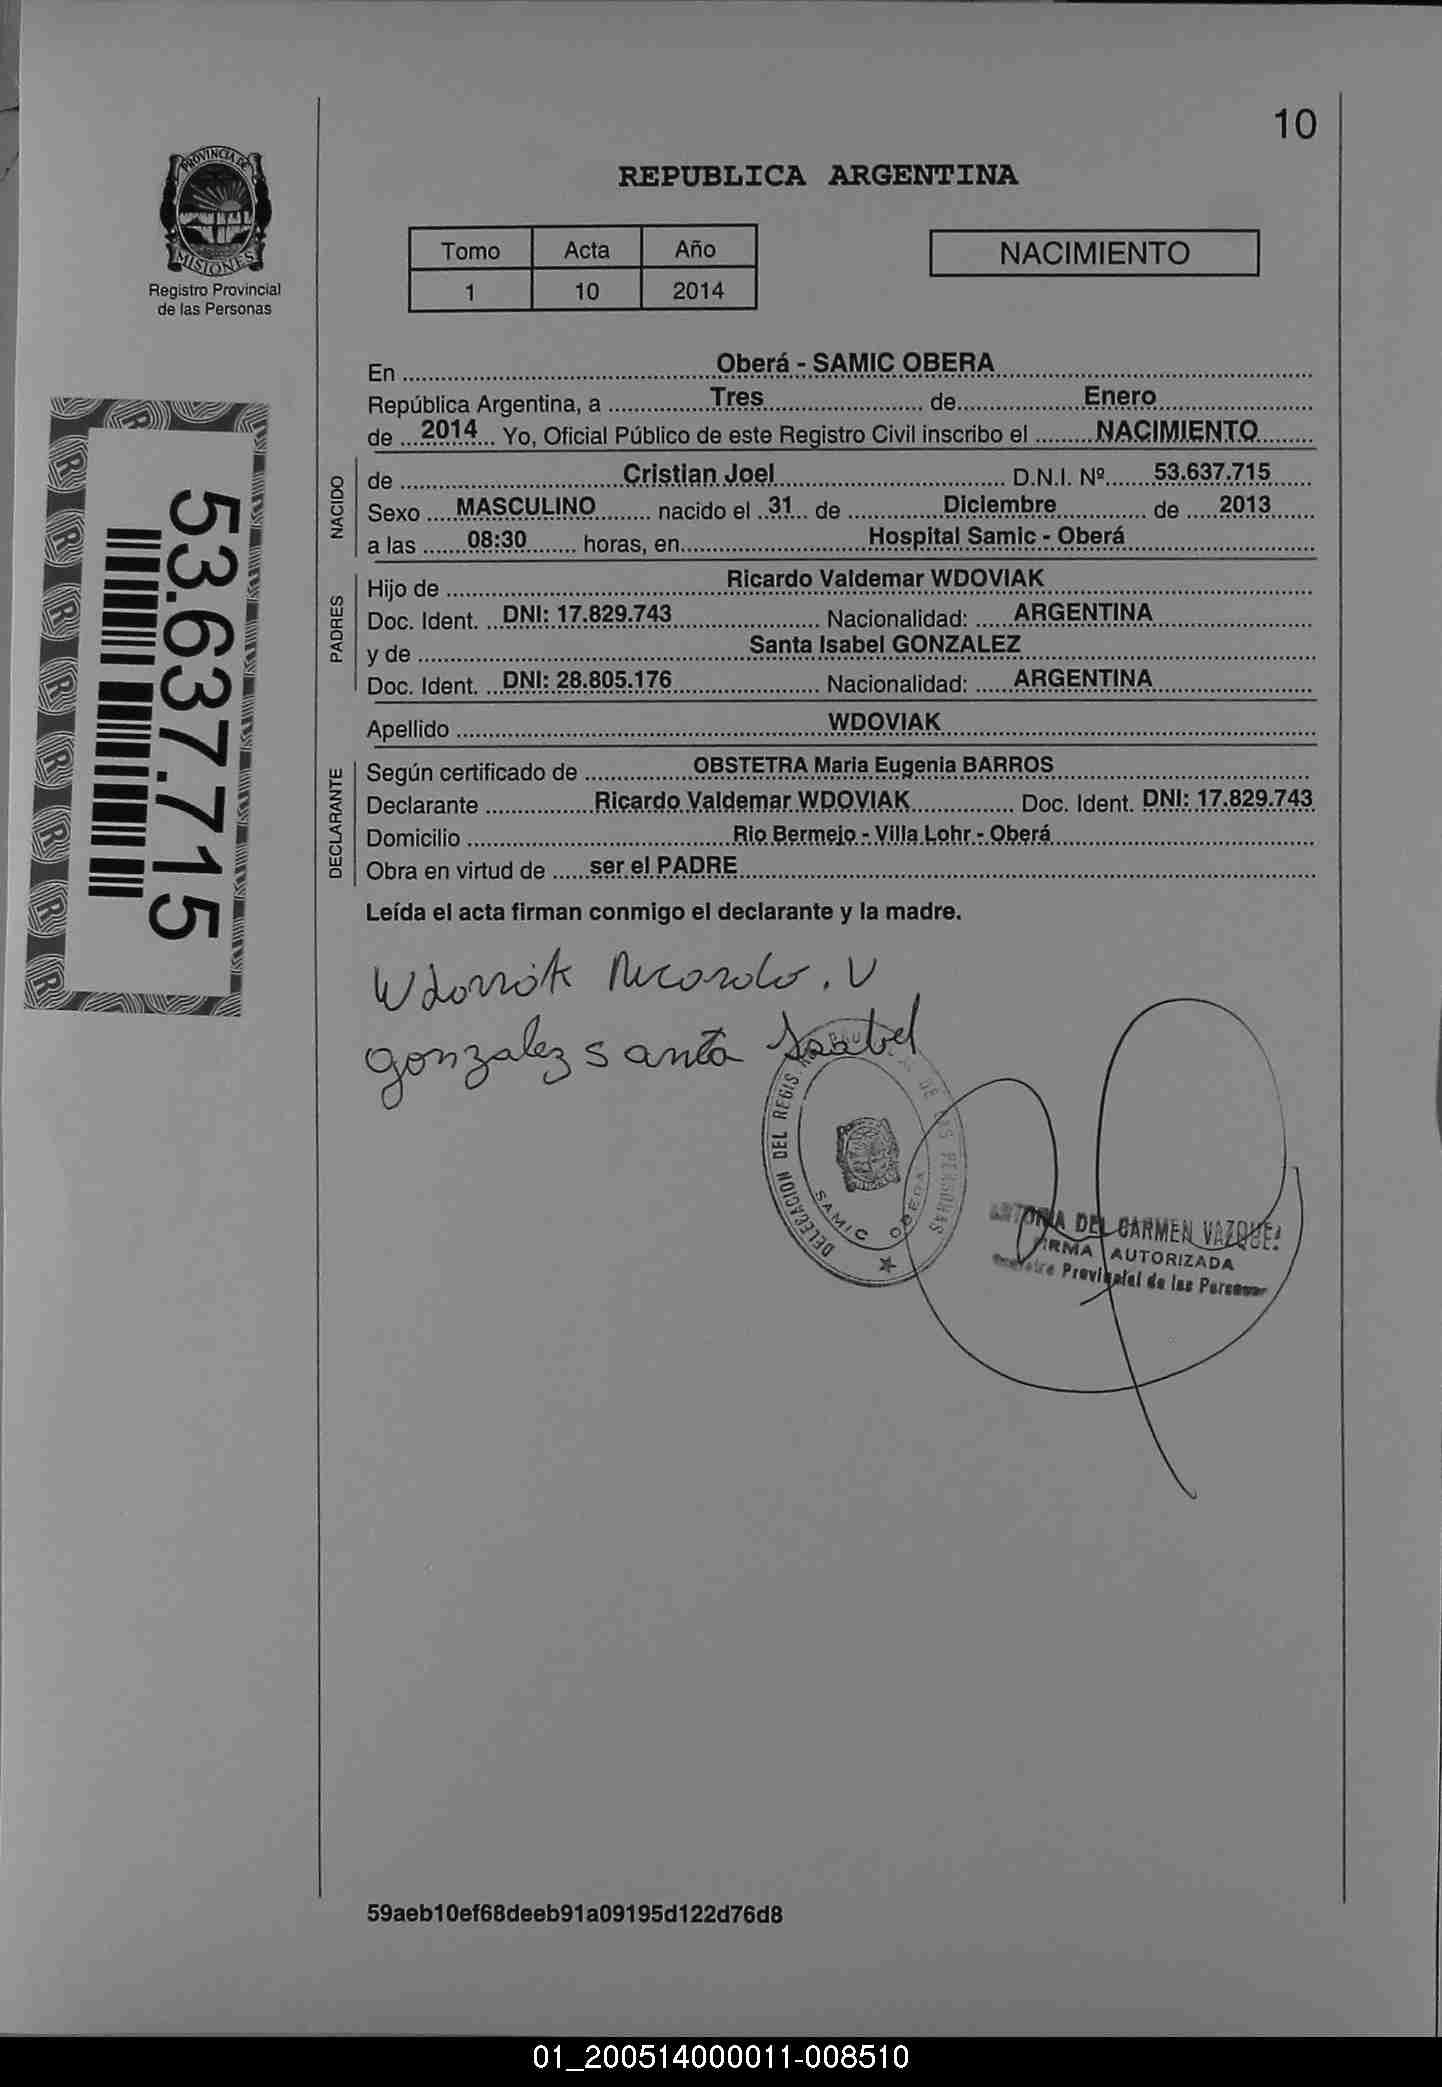 10
PROVINCIA DE
MISIONES
Registro Provincial
de las Personas
REPUBLICA ARGENTINA
Tomo Acta Año
1 10 2014
NACIMIENTO
En Oberá - SAMIC OBERA
República Argentina, a Tres de Enero
de 2014 Yo, Oficial Público de este Registro Civil inscribo el NACIMIENTO
NACIDO
de Cristian Joel D.N.I. Nº 53.637.715
Sexo MASCULINO nacido el 31 de Diciembre de 2013
a las 08:30 horas, en Hospital Samic - Oberá
PADRES
Hijo de Ricardo Valdemar WDOVIAK
Doc. Ident. DNI: 17.829.743 Nacionalidad: ARGENTINA
y de Santa Isabel GONZALEZ
Doc. Ident. DNI: 28.805.176 Nacionalidad: ARGENTINA
Apellido WDOVIAK
DECLARANTE
Según certificado de OBSTETRA Maria Eugenia BARROS
Declarante Ricardo Valdemar WDOVIAK Doc. Ident. DNI: 17.829.743
Domicilio Rio Bermejo - Villa Lohr - Oberá
Obra en virtud de ser el PADRE
Leída el acta firman conmigo el declarante y la madre.
53.637.715
Wdoviak Ricardo. V
gonzalez santa Isabel
DELEGACION DEL REGISTRO DE LAS PERSONAS
SAMIC OBERA
DEL CARMEN VAZQUEZ
FIRMA AUTORIZADA
Provincial de las Personas
59aeb10ef68deeb91a09195d122d76d8
01_200514000011-008510